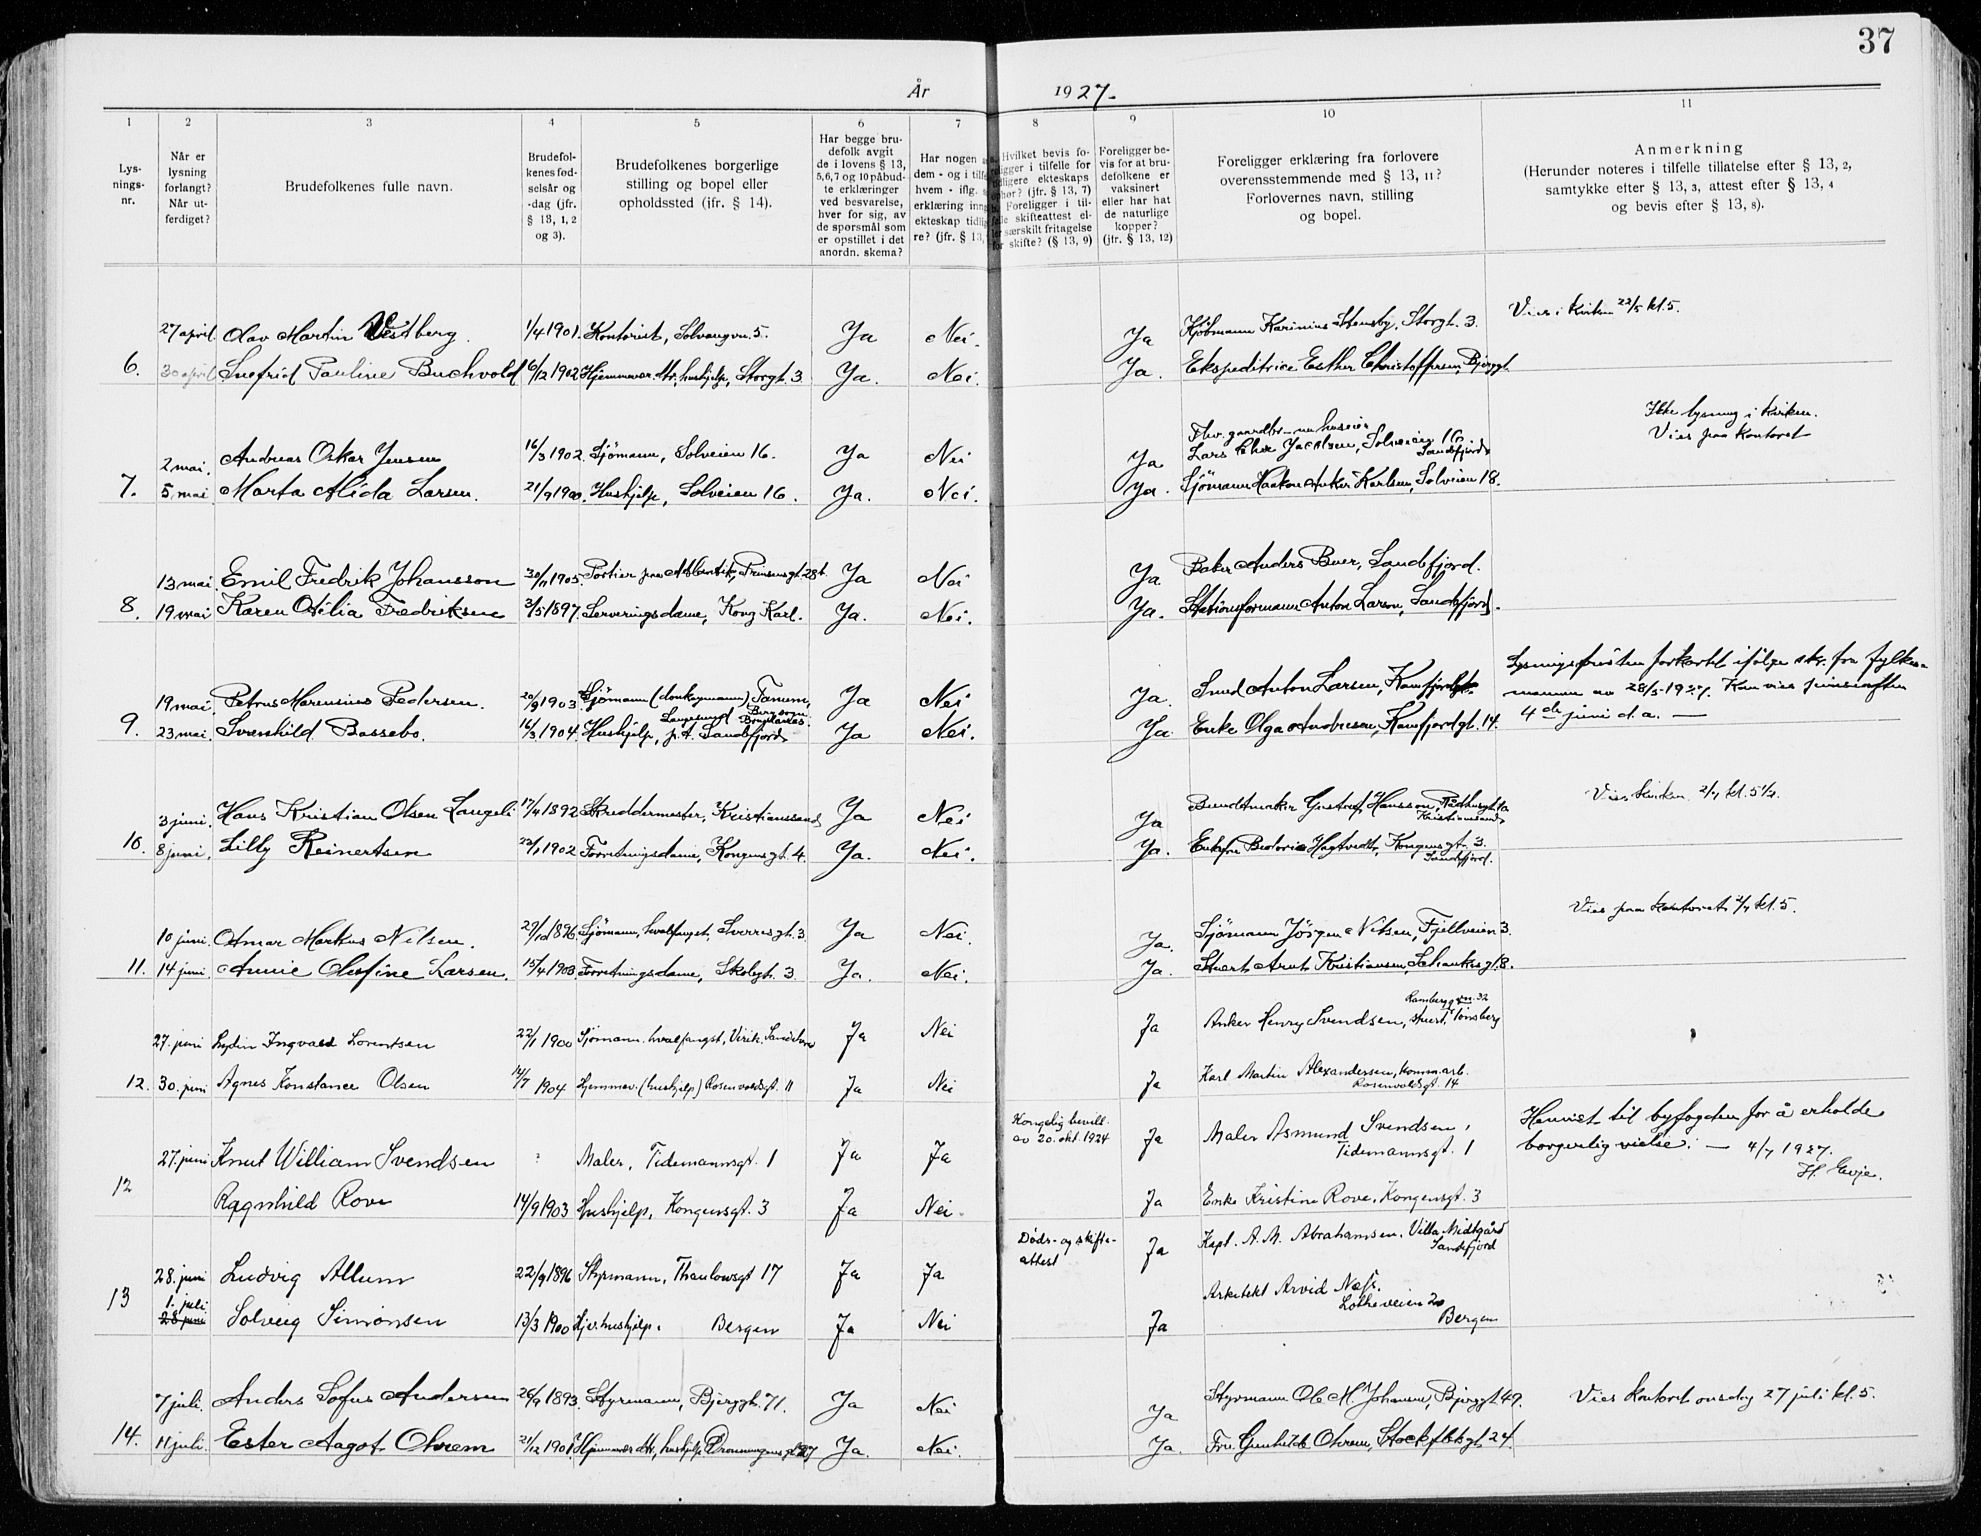 37
År 1927.
1 2 3 4 5 6 7 8 9 10 11
Lys-
nings-
nr.
Når er
lysning
forlangt?
Når ut-
ferdiget?
Brudefolkenes fulle navn.
Brudefol-
kenes fød-
selsår og
-dag (jfr.
§ 13, 1, 2
og 3).
Brudefolkenes borgerlige
stilling og bopel eller
opholdssted (jfr. § 14).
Har begge bru-
defolk avgit
de i lovens § 13,
5,6,7 og 10 påbud-
te erklæringer
ved besvarelse,
hver for sig, av
de spørsmål som
er opstillet i det
anordn. skema?
Har nogen
dem - og i tilf
hvem - iflg.
erklæring inng
ekteskap tidlig
re? (jfr. § 13,
Hvilket bevis fo-
religger i tilfelle for
tidligere ekteskaps
ophør? (jfr. § 13, 7)
Foreligger i til-
felle skifteattest el-
ler særskilt fritagelse
for skifte? (§ 13, 9)
Foreligger be-
vis for at bru-
defolkene er
vaksinert
eller har hat
de naturlige
kopper?
(jfr. § 13, 12)
Foreligger erklæring fra forlovere
overensstemmende med § 13, 11?
Forlovernes navn, stilling
og bopel.
Anmerkning
(Herunder noteres i tilfelle tillatelse efter § 13, 2,
samtykke efter § 13, 3, attest efter § 13, 4
og bevis efter § 13, 8).
27 april Olav Martin Vestberg. 1/4 1901. Kontorist, Solvangvn. 5. Ja Nei. Ja Kjøbmann Karinius Stensby, Storgt. 3. Vies i Kirken 22/5 kl. 5.
6. 30 april Snefrid Pauline Buchvold 6/12 1902 Hjemmevær. Mr, hushjelp, Storgt. 3 Ja. Nei. Ja. Ekspeditrice Esther Christoffersen, Bjerggt.
Ikke lysning i Kirken.
Vies paa Kontoret
2 mai. Andreas Oskar Jensen 16/3 1902. Sjömann, Solveien 16. Ja Nei Ja Fhv. gaardbr. nu huseier
Lars Chr Jacobsen, Solveien 16 Sandefjord
7. 5. mai Marta Alida Larsen. 21/9 1900. Hushjelp, Solveien 16. Ja. Nei. Ja. Sjömann Haakon Anker Karlsen, Solveien 18.
13 mai. Emil Fredrik Johansson 30/11 1905. Portier paa Atlantik, Prinsensgt. 28b. Ja Nei Ja Baker Anders Buer, Sandefjord.
8. 19. mai Karen Otilia Fredriksen 3/5 1897. Serveringsdame, Kong Karl. Ja. Nei. Ja. Stationsformann Anton Larsen, Sandefjord.
19 mai. Petrus Marensius Pedersen. 20/9 1903 Sjömann (donkeymann) Tanum, Ja Nei Ja. Smed Anton Larsen, Kamfjordgt. Lysningsfristen forkortet ifölge skr. fra fylkes-
mannen av 28/5-1927. Kan vies pinseaften
4de juni d.a. —
Langesund
9. 23. mai. Svanhild Bassebo. 16/3 1904. Hushjelp, p.t. Sandefjord Ja Nei. Ja. Enke Olga Andresen, Kamfjordgt. 14.
3 juni. Hans Kristian Olsen Langeli 17/4 1892 Skreddermester, Kristianssand Ja Nei Ja Bundtmaker Gustaf Hansson, Rådhusgt. 1a
Kristianssand Vies Kirken 2/7 kl. 5 1/2.
10. 8 juni. Lilly Reinertsen 23/1 1902 Forretningsdame, Kongensgt. 4. Ja. Nei. Ja. Enkefru Hagtvedt, Kongensgt. 3.
Sandefjord.
10 juni. Otmar Markus Nilsen. 29/10 1896. Sjömann, hvalfangst, Sverresgt. 3 Ja Nei. Ja. Sjömann Jörgen Nilsen, Fjellveien 3. Vies paa Kontoret 2/7 kl. 5.
11. 14 juni. Annie Olefine Larsen. 15/4 1903. Forretningsdame, Skolegt. 3 Ja. Nei. Ja. Stuert Arnt Kristiansen, Schankesgt. 8.
27. juni Lydin Ingvald Lorentsen 22/1 1900 Sjömann. hvalfangst, Virik, Sandeherred Ja Nei Ja Anker Henry Svendsen, stuert, Tönsberg
Rambergvn. 32
12. 30. juni Agnes Konstance Olsen 14/7 1904 Hjemmev. (hushjelp) Rosenvoldsgt. 11 Ja Nei Ja Karl Martin Alexandersen, komm.arb.
Rosenvoldsgt. 14
27. juni Knut William Svendsen Maler, Tidemannsgt. 1 Ja Ja Kongelig bevill.
av 20. okt. 1924 Ja Maler Asmund Svendsen,
Tidemannsgt. 1 Henvist til byfogden for å erholde
borgerlig vielse: — 4/7 1927.
H. Evje.
12 Ragnhild Rove 14/9 1903 Hushjelp, Kongensgt. 3 Ja Nei. Ja Enke Kristine Rove, Kongensgt. 3
28. juni Ludvig Allum 22/9 1896 Styrmann, Thaulowsgt 17 Ja Ja Döds- og skifte-
attest Ja Kapt. A. M. Abrahamsen, Villa Midtgård
Sandefjord
13 1. juli. 28 juni Solveig Simonsen 13/3 1900 Hjv. hushjelp. Bergen Ja Nei Ja Arkitekt Arvid Næss.
Lotheveien 20
Bergen
7 juli. Anders Sofus Andersen 26/9 1893. Styrmann, Bjerggt. 71. Ja Nei Ja Styrmann Ole M. Johansen, Bjerggt 49. Vies Kontoret onsdag 27 juli kl. 5.
14. 11 juli. Ester Aagot Ohrem 21/12 1901. Hjemmevær. Mr, hushjelp, Dronningensgt. 27 Ja. Nei. Ja. Fru Gunhild Ohrem, Stockfletsgt. 24.